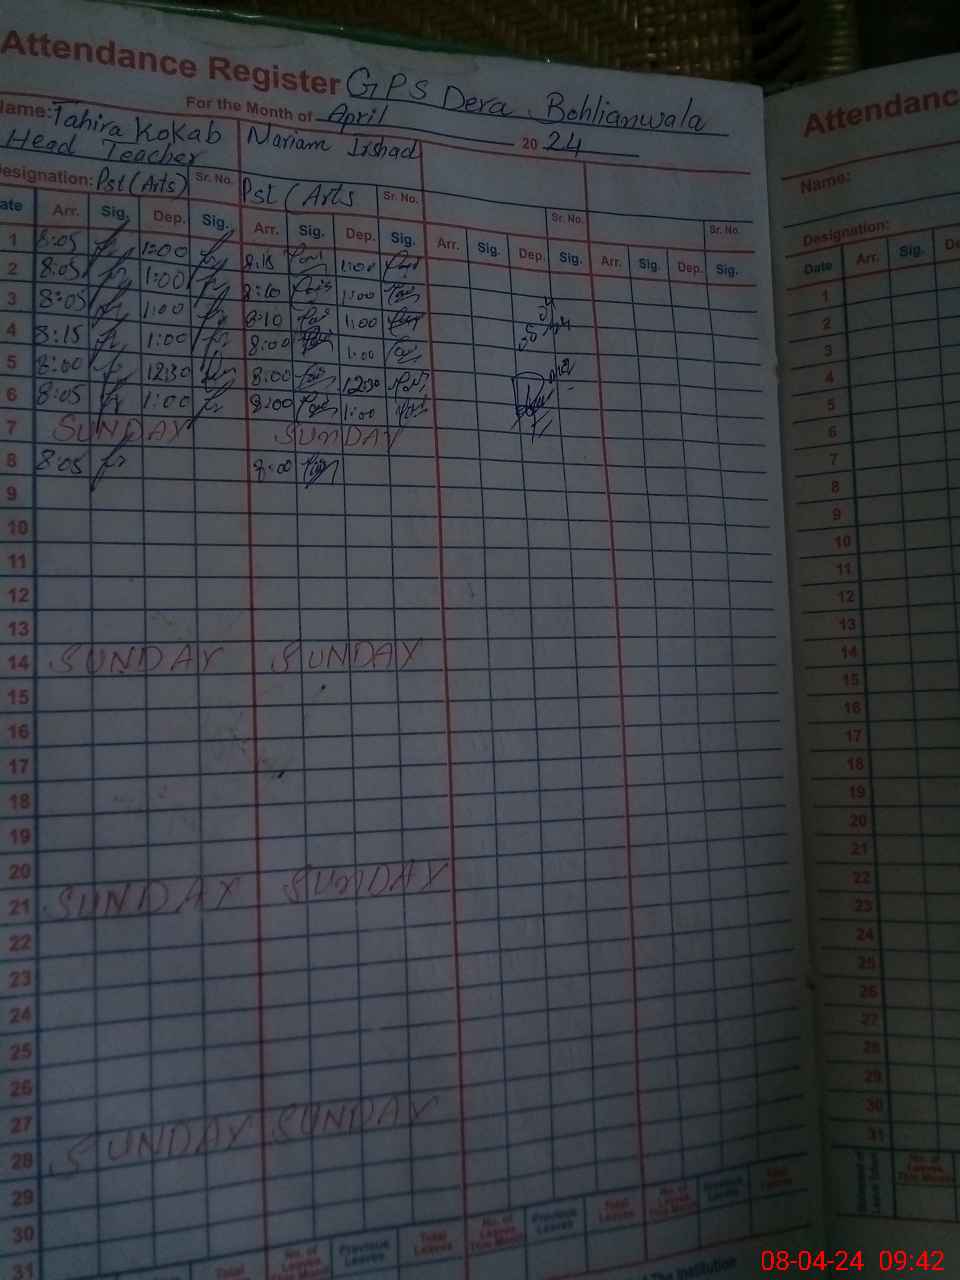 Attendance Register GPS Dera Bohlianwala
For the Month of April 2024
Name: Tahira Kokab
Head Teacher
Nariam Irshad
Designation: Pst (Arts) Sr. No. Pst (Arts Sr. No. Sr. No. Sr. No.
Date Arr. Sig. Dep. Sig. Arr. Sig. Dep. Sig. Arr. Sig. Dep. Sig. Arr. Sig. Dep. Sig.
1 8:05 1:00 8:15 1:00
2 8:05 1:00 8:10 1:00
3 8:05 1:00 8:10 1:00
4 8:15 1:00 8:00 1:00
5 8:00 12:30 8:00 12:30
6 8:05 1:00 8:00 1:00
7 SUNDAY SUNDAY
8 8:05 8:00
9
10
11
12
13
14 SUNDAY SUNDAY
15
16
17
18
19
20
21 SUNDAY SUNDAY
22
23
24
25
26
27
28 SUNDAY SUNDAY
29
30
31
Total
No. of Leaves This Month
Previous Leaves
Total Leaves
No. of Leaves This Month
Previous Leaves
Total Leaves
No. of Leaves This Month
Previous Leaves
Total Leaves
The Institution
Attendanc
Name:
Designation:
Date Arr. Sig. De
1
2
3
4
5
6
7
8
9
10
11
12
13
14
15
16
17
18
19
20
21
22
23
24
25
26
27
28
29
30
31
No. of Leaves This Month
08-04-24 09:42